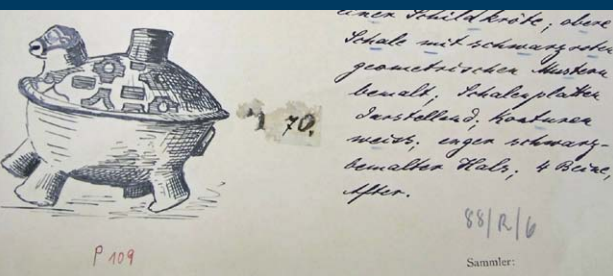 einer Schildkröte; obere
Schale mit schwarz-roten
geometrischen Mustern
bemalt, Schalenplatten
darstellend, Konturen
weiss; enger schwarz-
bemalter Hals; 4 Beine,
After.
70.
88/R/6
P 109
Sammler: